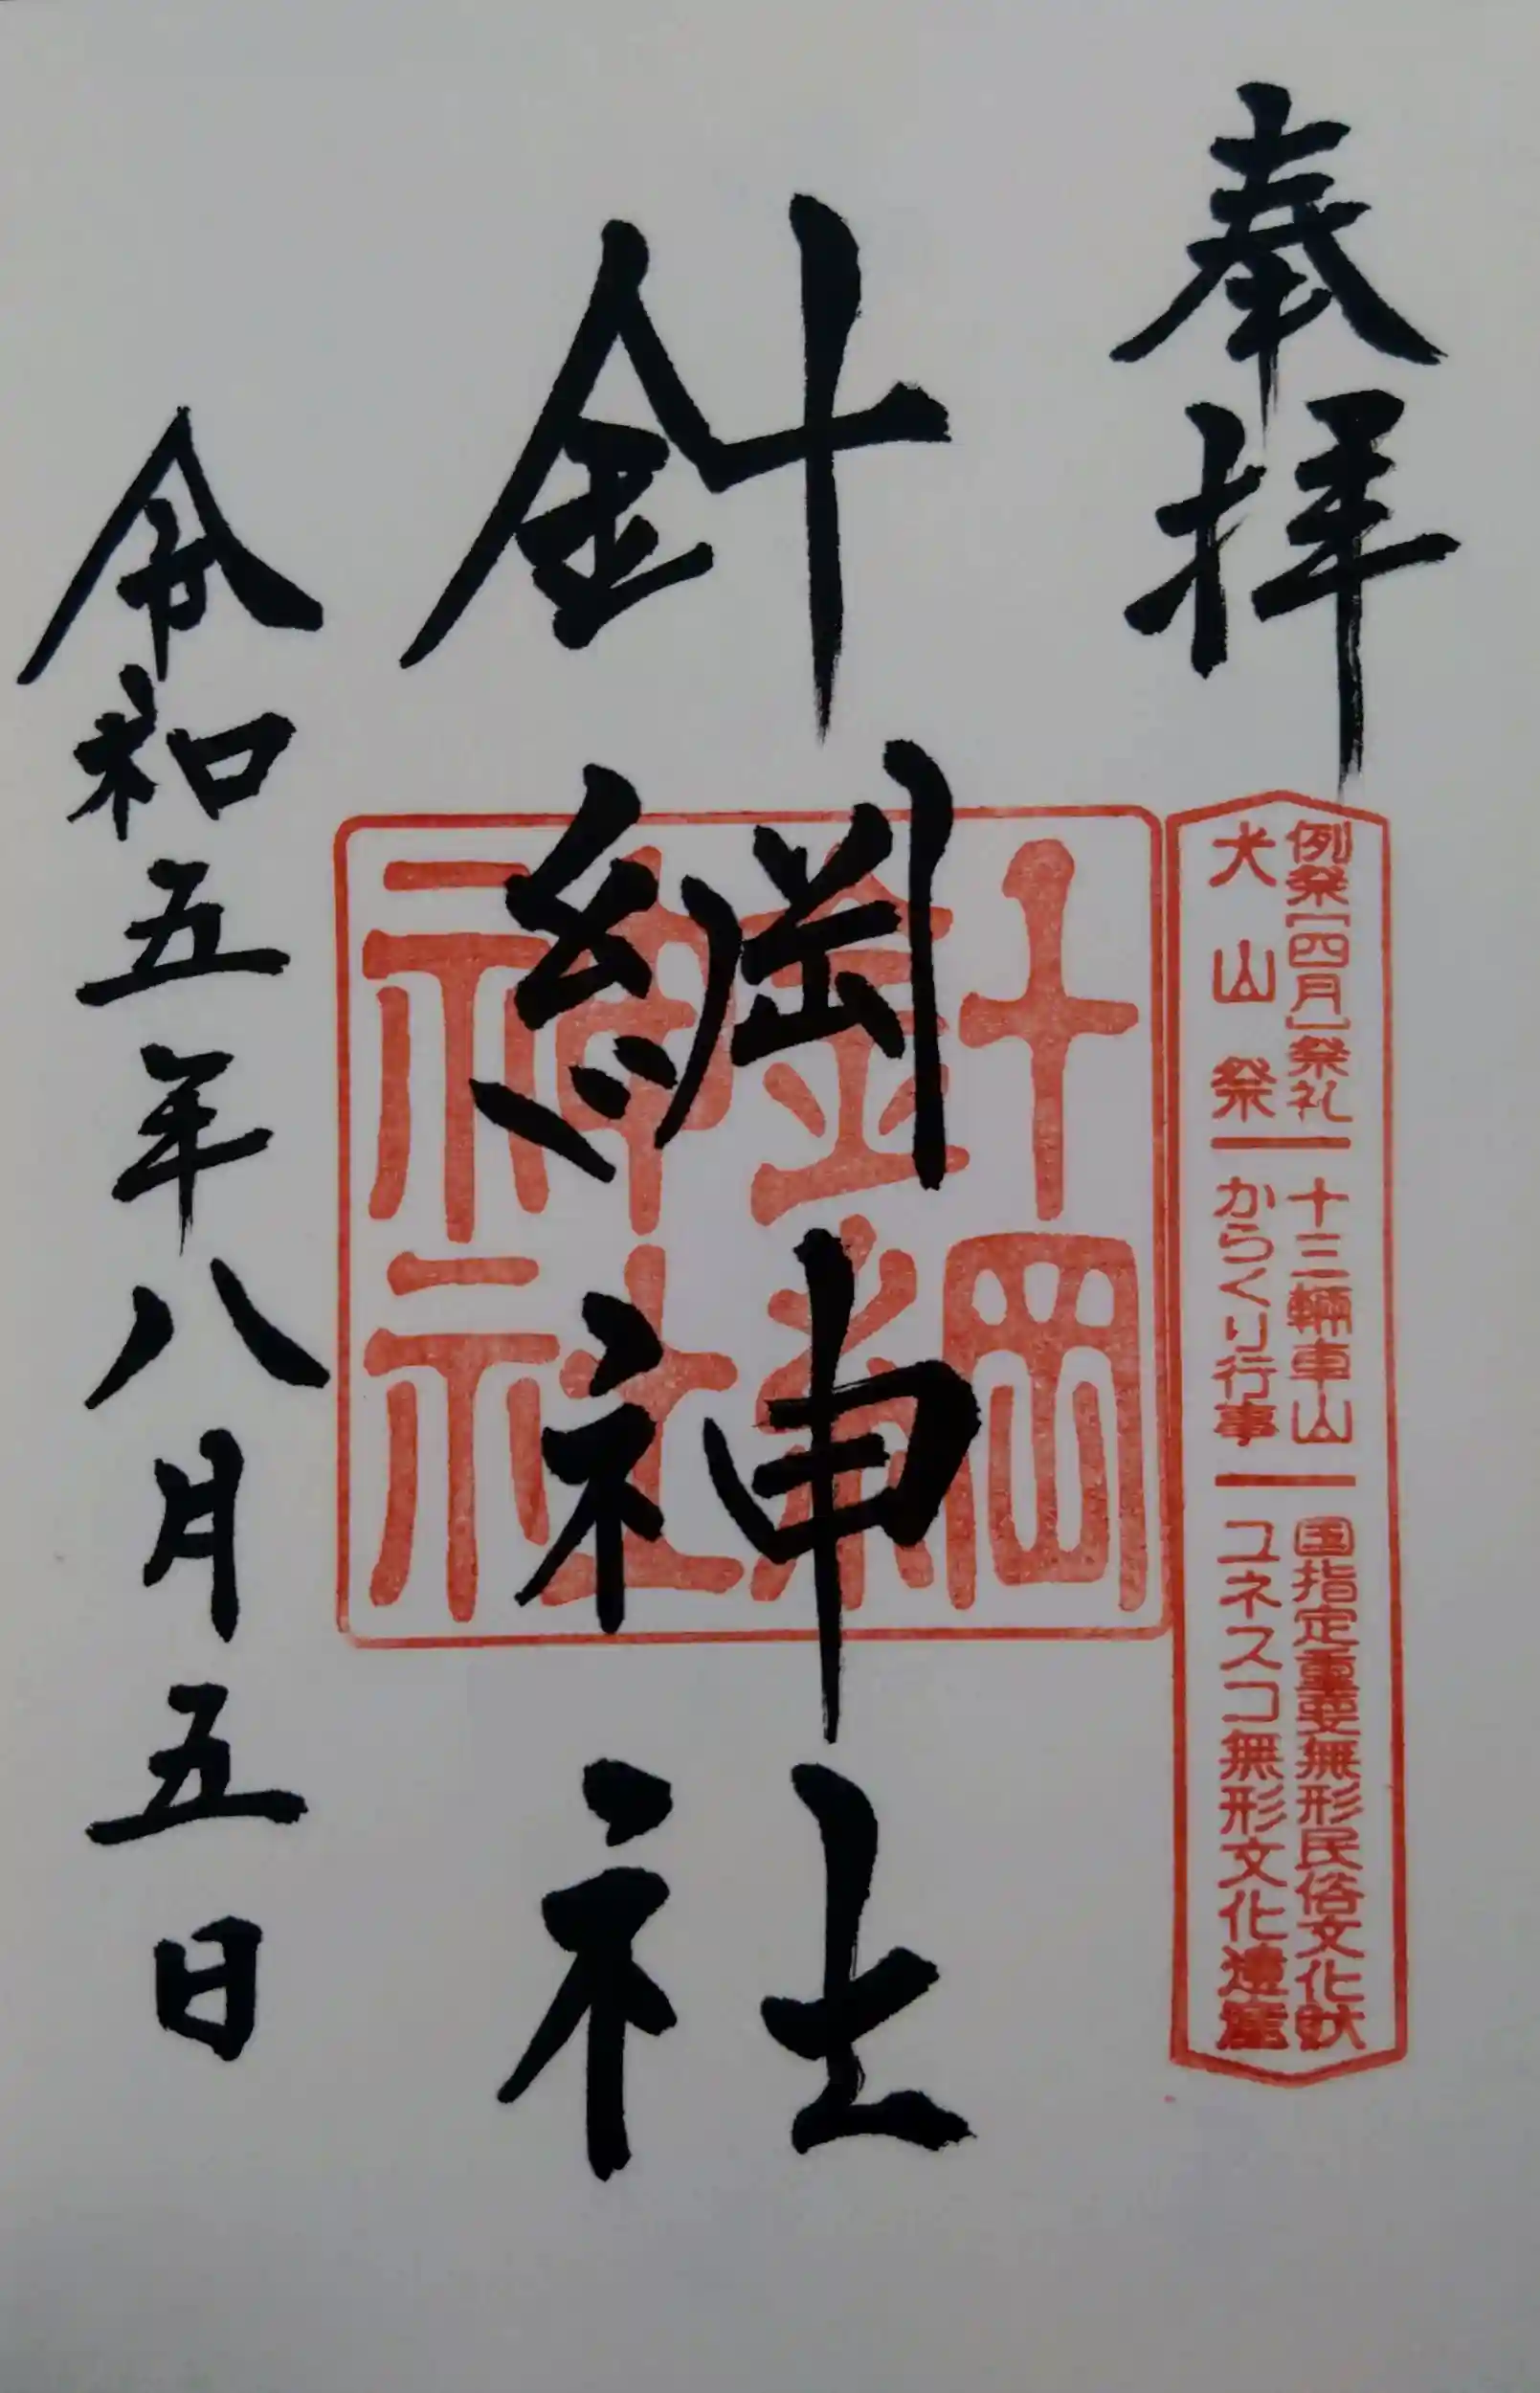 奉拝
例祭[四月]祭礼 十三輛車山 国指定重要無形民俗文化財
犬山祭 からくり行事 ユネスコ無形文化遺産
針綱神社
針綱
神社
令和五年八月五日